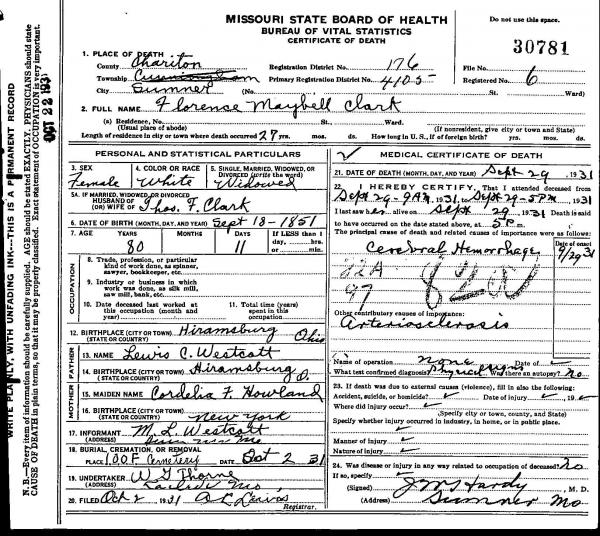 MISSOURI STATE BOARD OF HEALTH
BUREAU OF VITAL STATISTICS
CERTIFICATE OF DEATH
Do not use this space.
30781
1. PLACE OF DEATH
County Chariton Registration District No. 176 File No.
Township Cunningham Primary Registration District No. 4105 Registered No. 6
City Sumner (No. St. Ward)
2. FULL NAME Florence Maybell Clark
(a) Residence, No. St. Ward.
(Usual place of abode) (If nonresident, give city or town and State)
Length of residence in city or town where death occurred 27 yrs. mos. ds. How long in U. S., if of foreign birth? yrs. mos. ds.
PERSONAL AND STATISTICAL PARTICULARS
3. SEX 4. COLOR OR RACE 5. SINGLE, MARRIED, WIDOWED, OR DIVORCED (write the word)
Female White Widowed
5A. IF MARRIED, WIDOWED, OR DIVORCED
HUSBAND OF
(OR) WIFE OF Thos. F. Clark
6. DATE OF BIRTH (MONTH, DAY, AND YEAR) Sept 18-1851
7. AGE YEARS MONTHS DAYS If LESS than 1 day, hrs. or min.
80 11
OCCUPATION
8. Trade, profession, or particular kind of work done, as spinner, sawyer, bookkeeper, etc.
9. Industry or business in which work was done, as silk mill, saw mill, bank, etc.
10. Date deceased last worked at this occupation (month and year)
11. Total time (years) spent in this occupation
12. BIRTHPLACE (CITY OR TOWN) Hiramsburg
(STATE OR COUNTRY) Ohio
FATHER
13. NAME Lewis C. Westcott
14. BIRTHPLACE (CITY OR TOWN) Hiramsburg
(STATE OR COUNTRY) O.
MOTHER
15. MAIDEN NAME Cordelia F. Howland
16. BIRTHPLACE (CITY OR TOWN)
(STATE OR COUNTRY) New York
17. INFORMANT M. L. Westcott
(ADDRESS) Mo
18. BURIAL, CREMATION, OR REMOVAL
PLACE I.O.O.F. Cemetery DATE Oct 2 31
19. UNDERTAKER W G Thorne
(ADDRESS) Laclede Mo,
20. FILED Oct 2, 1931
Registrar.
MEDICAL CERTIFICATE OF DEATH
21. DATE OF DEATH (MONTH, DAY, AND YEAR) Sept 29, 1931
22. I HEREBY CERTIFY, That I attended deceased from
Sept 29-9AM, 1931, to Sept 29-5PM, 1931
I last saw her alive on Sept 29, 1931 Death is said
to have occurred on the date stated above, at 5 P.m.
The principal cause of death and related causes of importance were as follows:
Date of onset
Cerebral Hemorrhage 9/29 31
82A
97
Other contributory causes of importance:
Arteriosclerosis
Name of operation none Date of
What test confirmed diagnosis? Physical signs Was there an autopsy? No
23. If death was due to external causes (violence), fill in also the following:
Accident, suicide, or homicide? Date of injury , 19
Where did injury occur?
(Specify city or town, county, and State)
Specify whether injury occurred in industry, in home, or in public place.
Manner of injury
Nature of injury
24. Was disease or injury in any way related to occupation of deceased? No
If so, specify
(Signed) J M Hardy, M. D.
(Address) Sumner Mo
WRITE PLAINLY, WITH UNFADING INK---THIS IS A PERMANENT RECORD
N. B.—Every item of information should be carefully supplied. AGE should be stated EXACTLY. PHYSICIANS should state
CAUSE OF DEATH in plain terms, so that it may be properly classified. Exact statement of OCCUPATION is very important.
OCT 22 1931